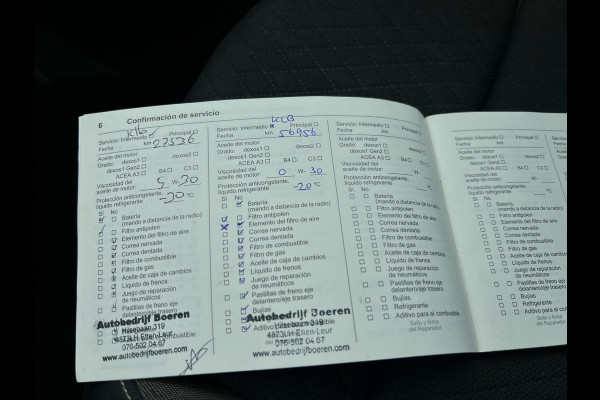 6 Confirmación de servicio
KLB
Servicio: Intermedio Principal
Fecha km 27536
Aceite del motor
Grado: dexos1 dexos2
dexos1 Gen2
ACEA A3 B4 C3
Viscosidad del
aceite de motor: 5 W- 30
Protección anticongelante,
líquido refrigerante -20°C
Sí No
Batería
(mando a distancia de la radio)
Filtro antipolen
Elemento del filtro de aire
Correa nervada
Correa dentada
Filtro de combustible
Filtro de gas
Aceite de caja de cambios
Líquido de frenos
Juego de reparación
de neumáticos
Pastillas de freno eje
delantero/eje trasero
Autobedrijf Boeren
319
4873LH Etten-Leur
076-502 04 67
www.autobedrijfboeren.com
KLB
Servicio: Intermedio Principal
Fecha km 56956
Aceite del motor
Grado: dexos1 dexos2
dexos1 Gen2
ACEA A3 B4 C3
Viscosidad del
aceite de motor: 0 W- 30
Protección anticongelante,
líquido refrigerante -20°C
Sí No
Batería
(mando a distancia de la radio)
Filtro antipolen
Elemento del filtro de aire
Correa nervada
Correa dentada
Filtro de combustible
Filtro de gas
Aceite de caja de cambios
Líquido de frenos
Juego de reparación
de neumáticos
Pastillas de freno eje
delantero/eje trasero
Bujías
Autobedrijf Boeren
319
4873LH Etten-Leur
076-502 04 67
www.autobedrijfboeren.com
Servicio: Intermedio Principal
Fecha km
Aceite del motor
Grado: dexos1 dexos2
dexos1 Gen2
ACEA A3 B4 C3
Viscosidad del
aceite de motor: W-
Protección anticongelante,
líquido refrigerante °C
Sí No
Batería
(mando a distancia de la radio)
Filtro antipolen
Elemento del filtro de aire
Correa nervada
Correa dentada
Filtro de combustible
Filtro de gas
Aceite de caja de cambios
Líquido de frenos
Juego de reparación
de neumáticos
Pastillas de freno eje
delantero/eje trasero
Bujías
Refrigerante
Aditivo para el combustible
Sello y firma
del Reparador
Servicio: Intermedio
Fecha
Aceite del motor
Grado: dexos1
dexos1 Gen2
ACEA A3
Viscosidad del
aceite de motor:
Protección anticongelante,
líquido refrigerante
Sí No
Batería
(mando a distancia de la radio)
Filtro antipolen
Elemento del filtro de aire
Correa nervada
Correa dentada
Filtro de combustible
Filtro de gas
Aceite de caja de cambios
Líquido de frenos
Juego de reparación
de neumáticos
Pastillas de freno eje
delantero/eje trasero
Bujías
Refrigerante
Aditivo para el combustible
Sello y firma
del Reparador